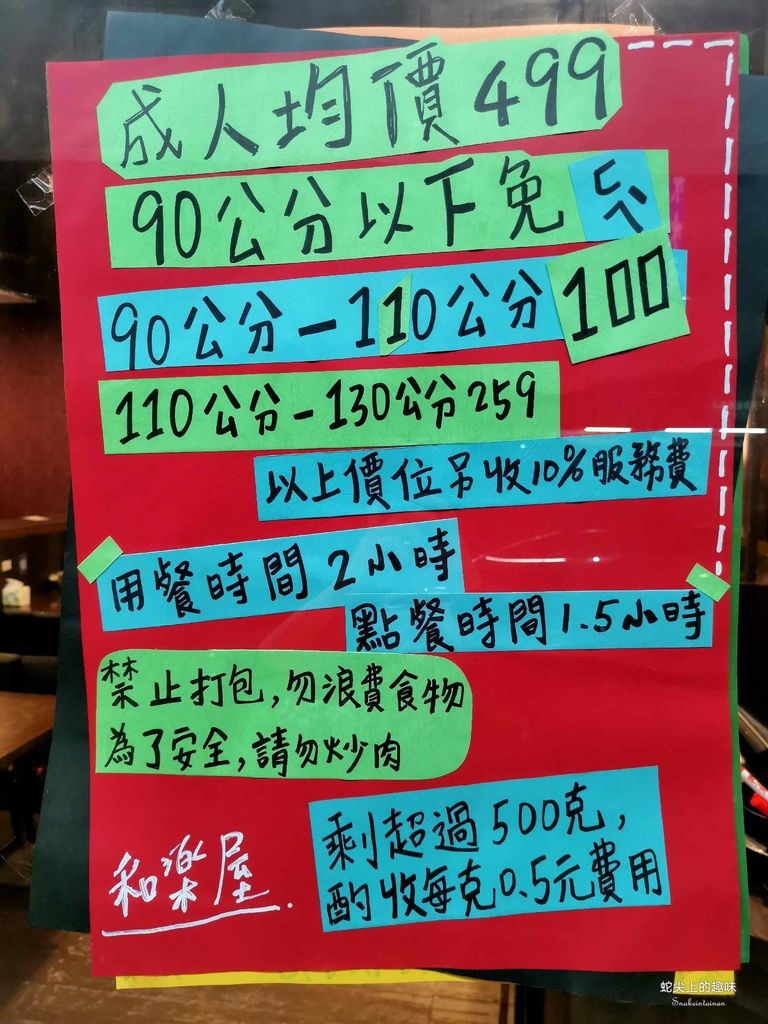 成人均價499
90公分以下免
90公分-110公分100
110公分-130公分259
以上價位另收10%服務費
用餐時間2小時
點餐時間1.5小時
禁止打包,勿浪費食物
為了安全,請勿炒肉
剩超過500克,
酌收每克0.5元費用
和楽屋.
蛇尖上的趣味
Snakeintainan